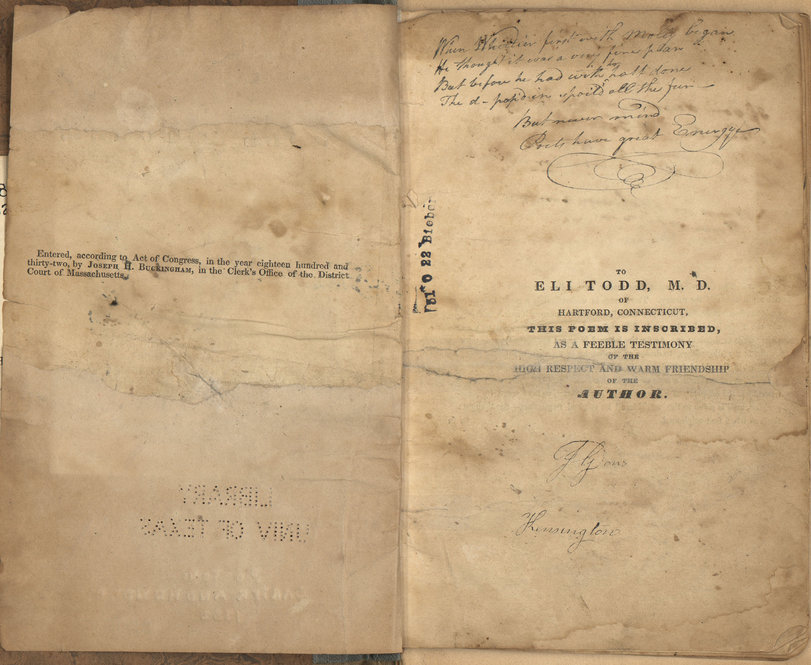 Entered, according to Act of Congress, in the year eighteen hundred and
thirty-two, by JOSEPH H. BUCKINGHAM, in the Clerk's Office of the District
Court of Massachusetts.
LIBRARY
UNIV OF TEXAS
When Whittier first with Moll began
He thought it was a very fine plan
But before he had with half done
The d- pop'd in spoil'd all the fun
But never mind
Poets have great Energy
TO
ELI TODD, M. D.
OF
HARTFORD, CONNECTICUT,
THIS POEM IS INSCRIBED,
AS A FEEBLE TESTIMONY
OF THE
HIGH RESPECT AND WARM FRIENDSHIP
OF THE
AUTHOR.
Kensington